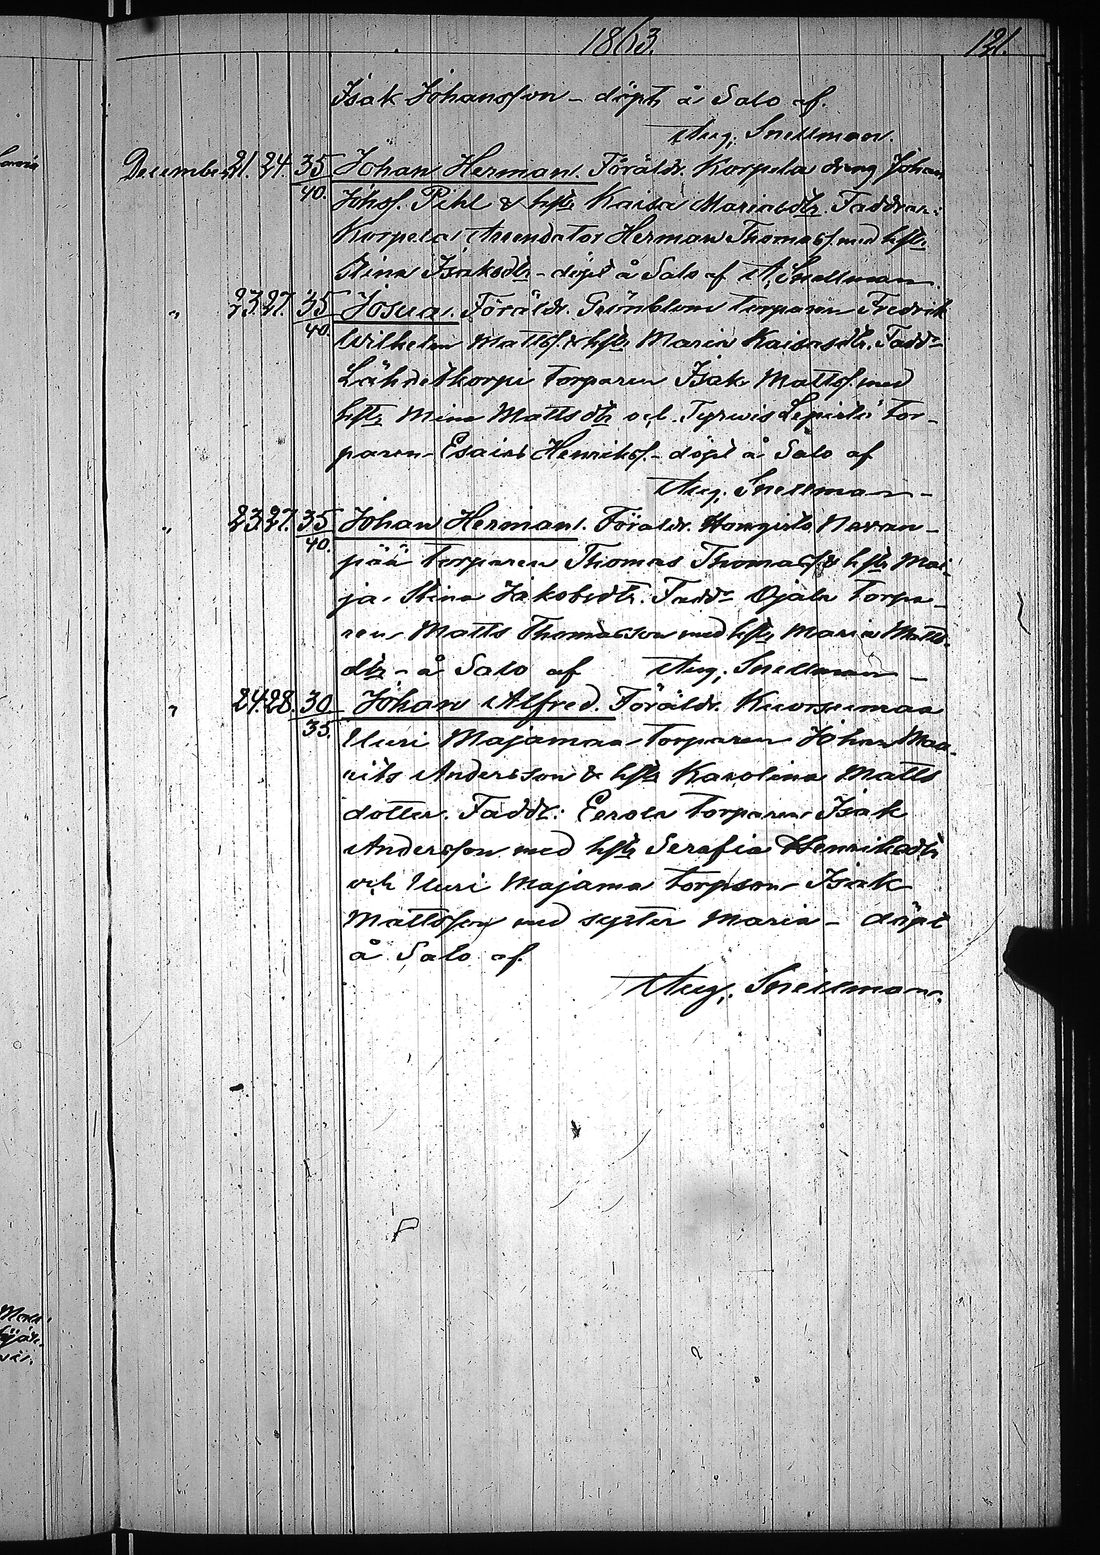 1863. 121.
Isak Johansson – döpt å Salo af.
Aug. Snellman.
December 21. 24. 35/40. Johan Herman. Föräldr. Korpela dreng Johan
Johsf. Pihl & hstr Kaisa Mariasdtr. Faddrar:
Korpela Arrendator Herman Thomasf. med hstr
Stina Isaksdtr – döpt å Salo af A. Snellman.
" 23. 27. 35/40. Josua. Föräldr. Grönblom torparen Fredrik
Wilhelm Mattsf. & hstr Maria Kaisasdtr. Faddr
Lähdetkorpi torparen Isak Mattsf. med
hstr Mina Mattsdtr och Tyrwis Lepistö tor-
paren Esaias Henriksf. – döpt å Salo af
Aug. Snellman –
" 23. 27. 35/40. Johan Herman. Föräldr. Hongisto Nevan-
pää torparen Thomas Thomasf. & hstr Mai-
ja Stina Jakobsdtr. Faddr Ojala torpa-
ren Matts Thomasson med hstr Maria Matts-
dtr – å Salo af Aug. Snellman –
" 24. 28. 30/35. Johan Alfred. Föräldr. Kuorsumaa
Uuri Majamaa torparen Johan Mau-
rits Andersson & hstr Karolina Matts
dotter. Faddr: Eerola torparen Isak
Andersson med hstr Serafia Henriksdtr
och Uuri Majama torpson Isak
Mattsson med syster Maria – döpt
å Salo af.
Aug. Snellman.